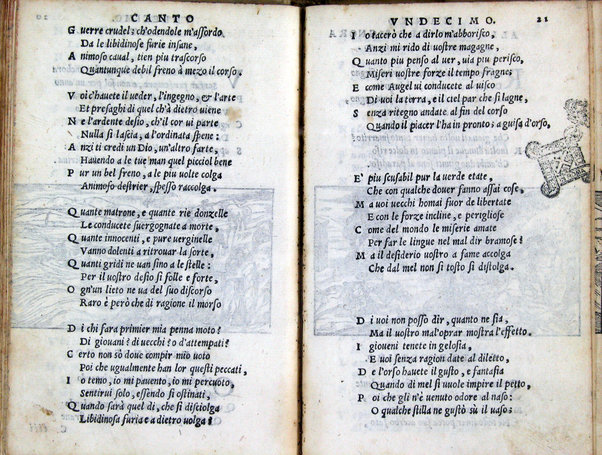 CANTO
G uerre crudel: ch'odendole m'assordo.
Da le libidinose furie insane,
A nimoso caual, tien piu trascorso
Quantunque debil freno à mezo il corso.
V oi c'hauete il ueder, l'ingegno, & l'arte
Et presaghi di quel ch'à dietro uiene
N e l'ardente desio, ch'il cor ui parte
Nulla si lascia, a l'ordinata spene:
A nzi ei credi un Dio, un'altro farte,
Hauendo a le tue man quel picciol bene
P ur un bel freno, a le piu uolte colga
Animoso destrier, spesso raccolga.
Q uante matrone, e quante rie donzelle
Le conducete suergognate a morte,
Q uante innocenti, e pure uerginelle
Vanno dolenti a ritrouar la sorte,
Q uanti gridi ne uan sino a le stelle:
Per il uostro desio si folle e forte,
O gn'un lieto ne ua del suo discorso
Raro è però che di ragione il morso
D i chi sarà primier mia penna moto?
Di giouani? di uecchi? o d'attempati?
C erto non sò doue compir mio uoto
Poi che ugualmente han lor questi peccati,
I o temo, io mi pauento, io mi percuoto,
Sentirui solo, essendo sì ostinati,
Q uando sarà quel dì, che si disciolga
Libidinosa furia e a dietro uolga?
VNDECIMO. 21
I o tacerò che a dirlo m'abborisco,
Anzi mi rido di uostre magagne,
Q uanto piu penso al uer, uia piu perisco,
Miseri uostre forze il tempo fragne;
E come Augel ui conducete al uisco
Di uoi la terra, e il ciel par che si lagne,
S enza ritegno andate al fin del corso
Quando il piacer l'ha in pronto: a guisa d'orso,
E' piu scusabil pur la uerde etate,
Che con qualche douer fanno assai cose,
M a uoi uecchi homai fuor de libertate
E con le forze incline, e perigliose
C ome del mondo le miserie amate
Per far le lingue nel mal dir bramose?
M a il desiderio uostro a fame accolga
Che dal mal non si tosto si distolga.
D i uoi non posso dir, quanto ne sia,
Ma il uostro mal'oprar mostra l'effetto.
I gioueni tenete in gelosia,
E uoi senza ragion date al diletto,
D e l'orso hauete il gusto, e fantasia
Quando di mel si uuole impire il petto,
P oi che gli n'è uenuto odore al naso:
O qualche stilla ne gustò sù il uaso: